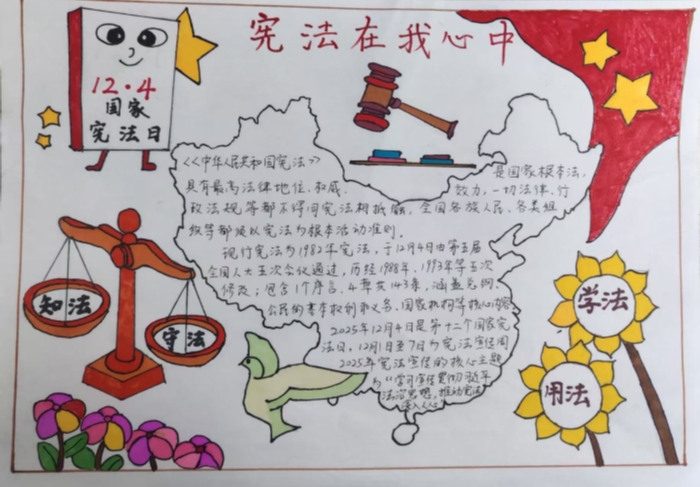 宪法在我心中
12·4
国家
宪法日
<<中华人民共和国宪法>> 是国家根本法,
具有最高法律地位、权威、效力,一切法律、行
政法规等都不得同宪法相抵触,全国各族人民、各类组
织等都须以宪法为根本活动准则.
现行宪法为1982年宪法,于12月4日由第五届
全国人大五次会议通过,历经1988年、1993年等五次
修改;包含1个序言、4章共143条,涵盖总纲.
公民的基本权利和义务、国家机构等核心内容
2025年12月4日是第十二个国家宪
法日、12月1日至7日为宪法宣传周
2025年宪法宣传的核心主题
为“学习宣传贯彻习近平
法治思想,推动宪法
深入人心”
知法
守法
学法
用法